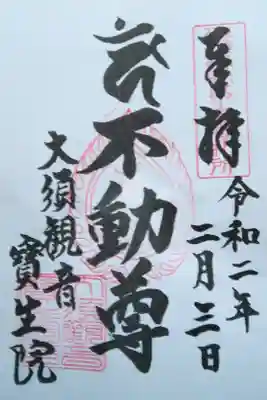 奉拝
令和二年
二月三日
不動尊
大須観音
寶生院